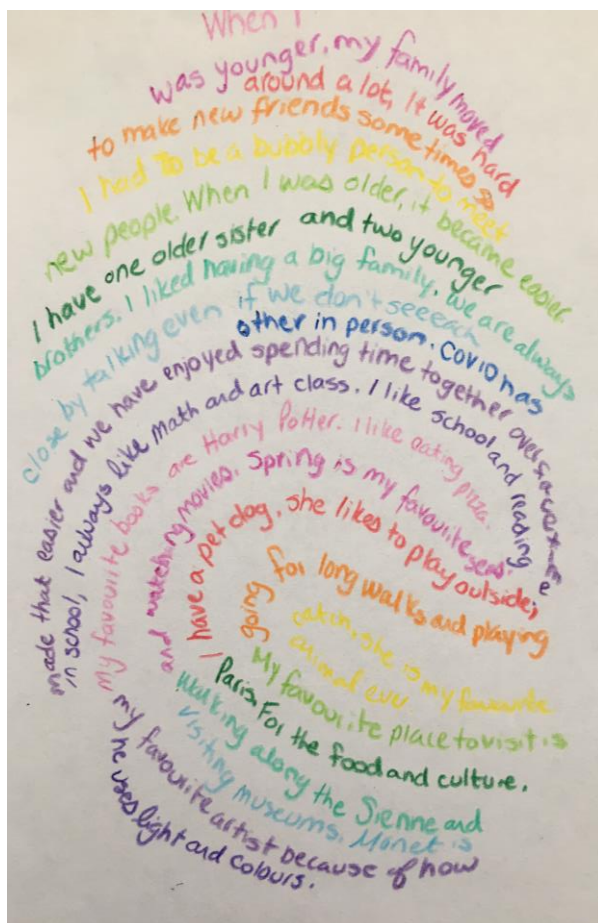 When I
was younger, my family moved
around a lot, It was hard
to make new friends sometimes so
I had To be a bubbly person to meet
new people. When I was older, it became easier.
I have one older sister and two younger
brothers. I liked having a big family, we are always
close by talking even if we don't seeeach
other in person. COVID has
made that easier and we have enjoyed spending time together over
in school, I always like Math and art class. I like school and reading
My favourite books are Harry Potter. I like eating pizza.
and watching movies. Spring is my favourite
I have a pet dog, she likes to play outside;
going for long walks and playing
catch, she is my favourite
animal
My favourite place to visit is
Paris, For the food and culture.
Walking along the Sienne and
visiting museums. Monet is
my favourite artist because of how
he uses light and colours.